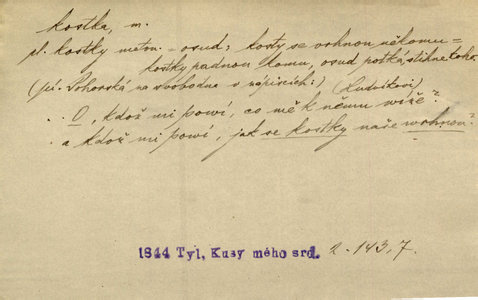 kostka, m.
pl. kostky meton. - osud; kosty se vrhnou někomu =
kostky padnou komu, osud potká, stihne koho.
(pí. Pohorská na svobodna v zápiscích:) (Ludvíkovi)
. . O, kdož mi powí, co mě k němu wíže?
. a kdož mi powí, jak se kostky naše wrhnou?
1844 Tyl, Kusy mého srd. 2. 143, 7.